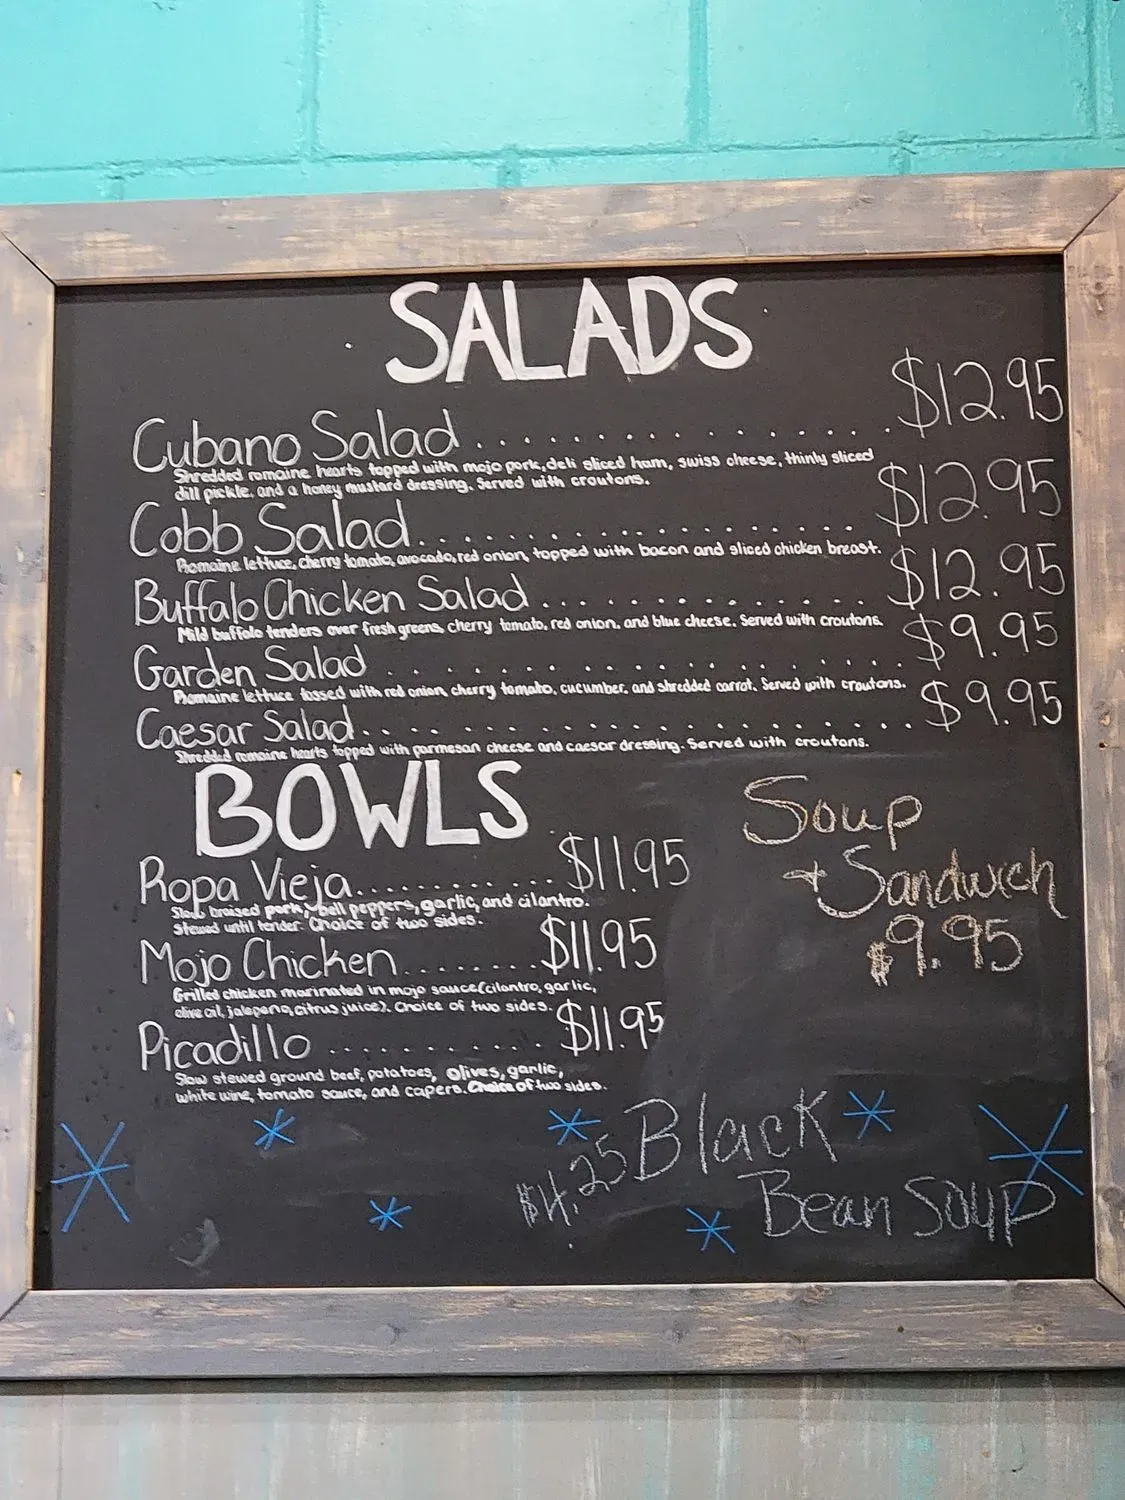 SALADS
Cubano Salad . . . . . . . . . . . . . . . . . $12.95
Shredded romaine hearts topped with mojo pork, deli sliced ham, swiss cheese, thinly sliced
dill pickle, and a honey mustard dressing. Served with croutons.
Cobb Salad . . . . . . . . . . . . . . . . . $12.95
Romaine lettuce, cherry tomato, avocado, red onion, topped with bacon and sliced chicken breast.
Buffalo Chicken Salad . . . . . . . . . . . . . $12.95
Mild buffalo tenders over fresh greens, cherry tomato, red onion, and blue cheese. Served with croutons.
Garden Salad . . . . . . . . . . . . . . . . . $9.95
Romaine lettuce tossed with red onion, cherry tomato, cucumber, and shredded carrot. Served with croutons.
Caesar Salad . . . . . . . . . . . . . . . . . $9.95
Shredded romaine hearts topped with parmesan cheese and caesar dressing. Served with croutons.
BOWLS
Ropa Vieja . . . . . . . . . . . . $11.95
Slow braised pork, bell peppers, garlic, and cilantro.
Stewed until tender. Choice of two sides.
Mojo Chicken . . . . . . . . . $11.95
Grilled chicken marinated in mojo sauce (cilantro, garlic,
olive oil, jalepeno, citrus juice). Choice of two sides.
Picadillo . . . . . . . . . . . $11.95
Slow stewed ground beef, potatoes, olives, garlic,
white wine, tomato sauce, and capers. Choice of two sides.
Soup
+ Sandwich
$9.95
$4.25 Black
Bean Soup